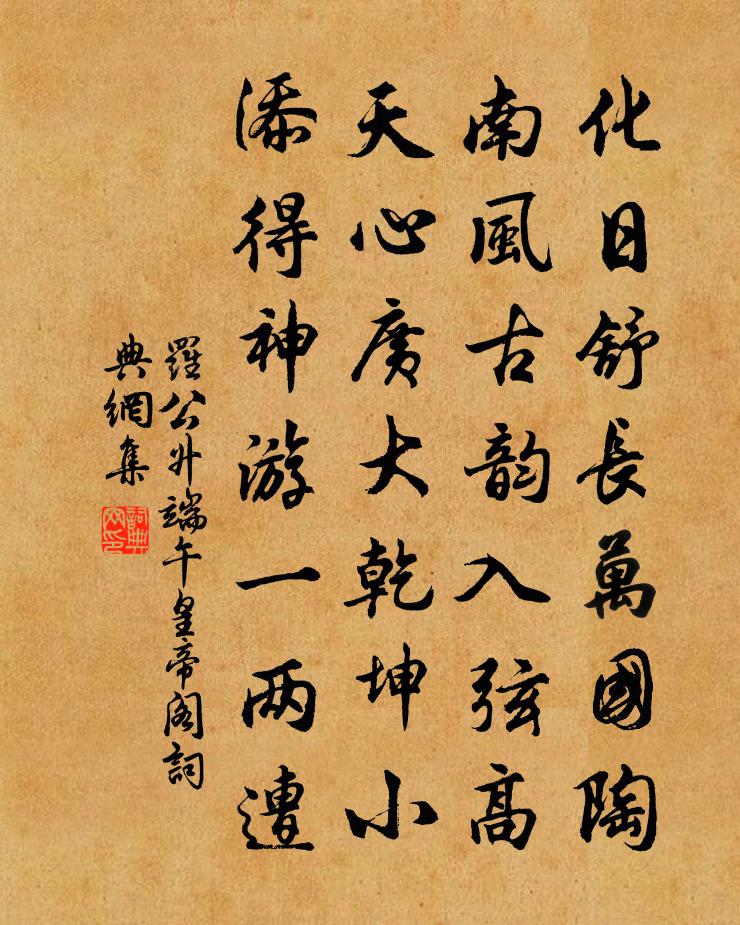 化日舒長萬國陶
南風古韵入弦高
天心廣大乾坤小
添得神游一两遭
羅公升端午皇帝阁詞
典網集
詞典
网印